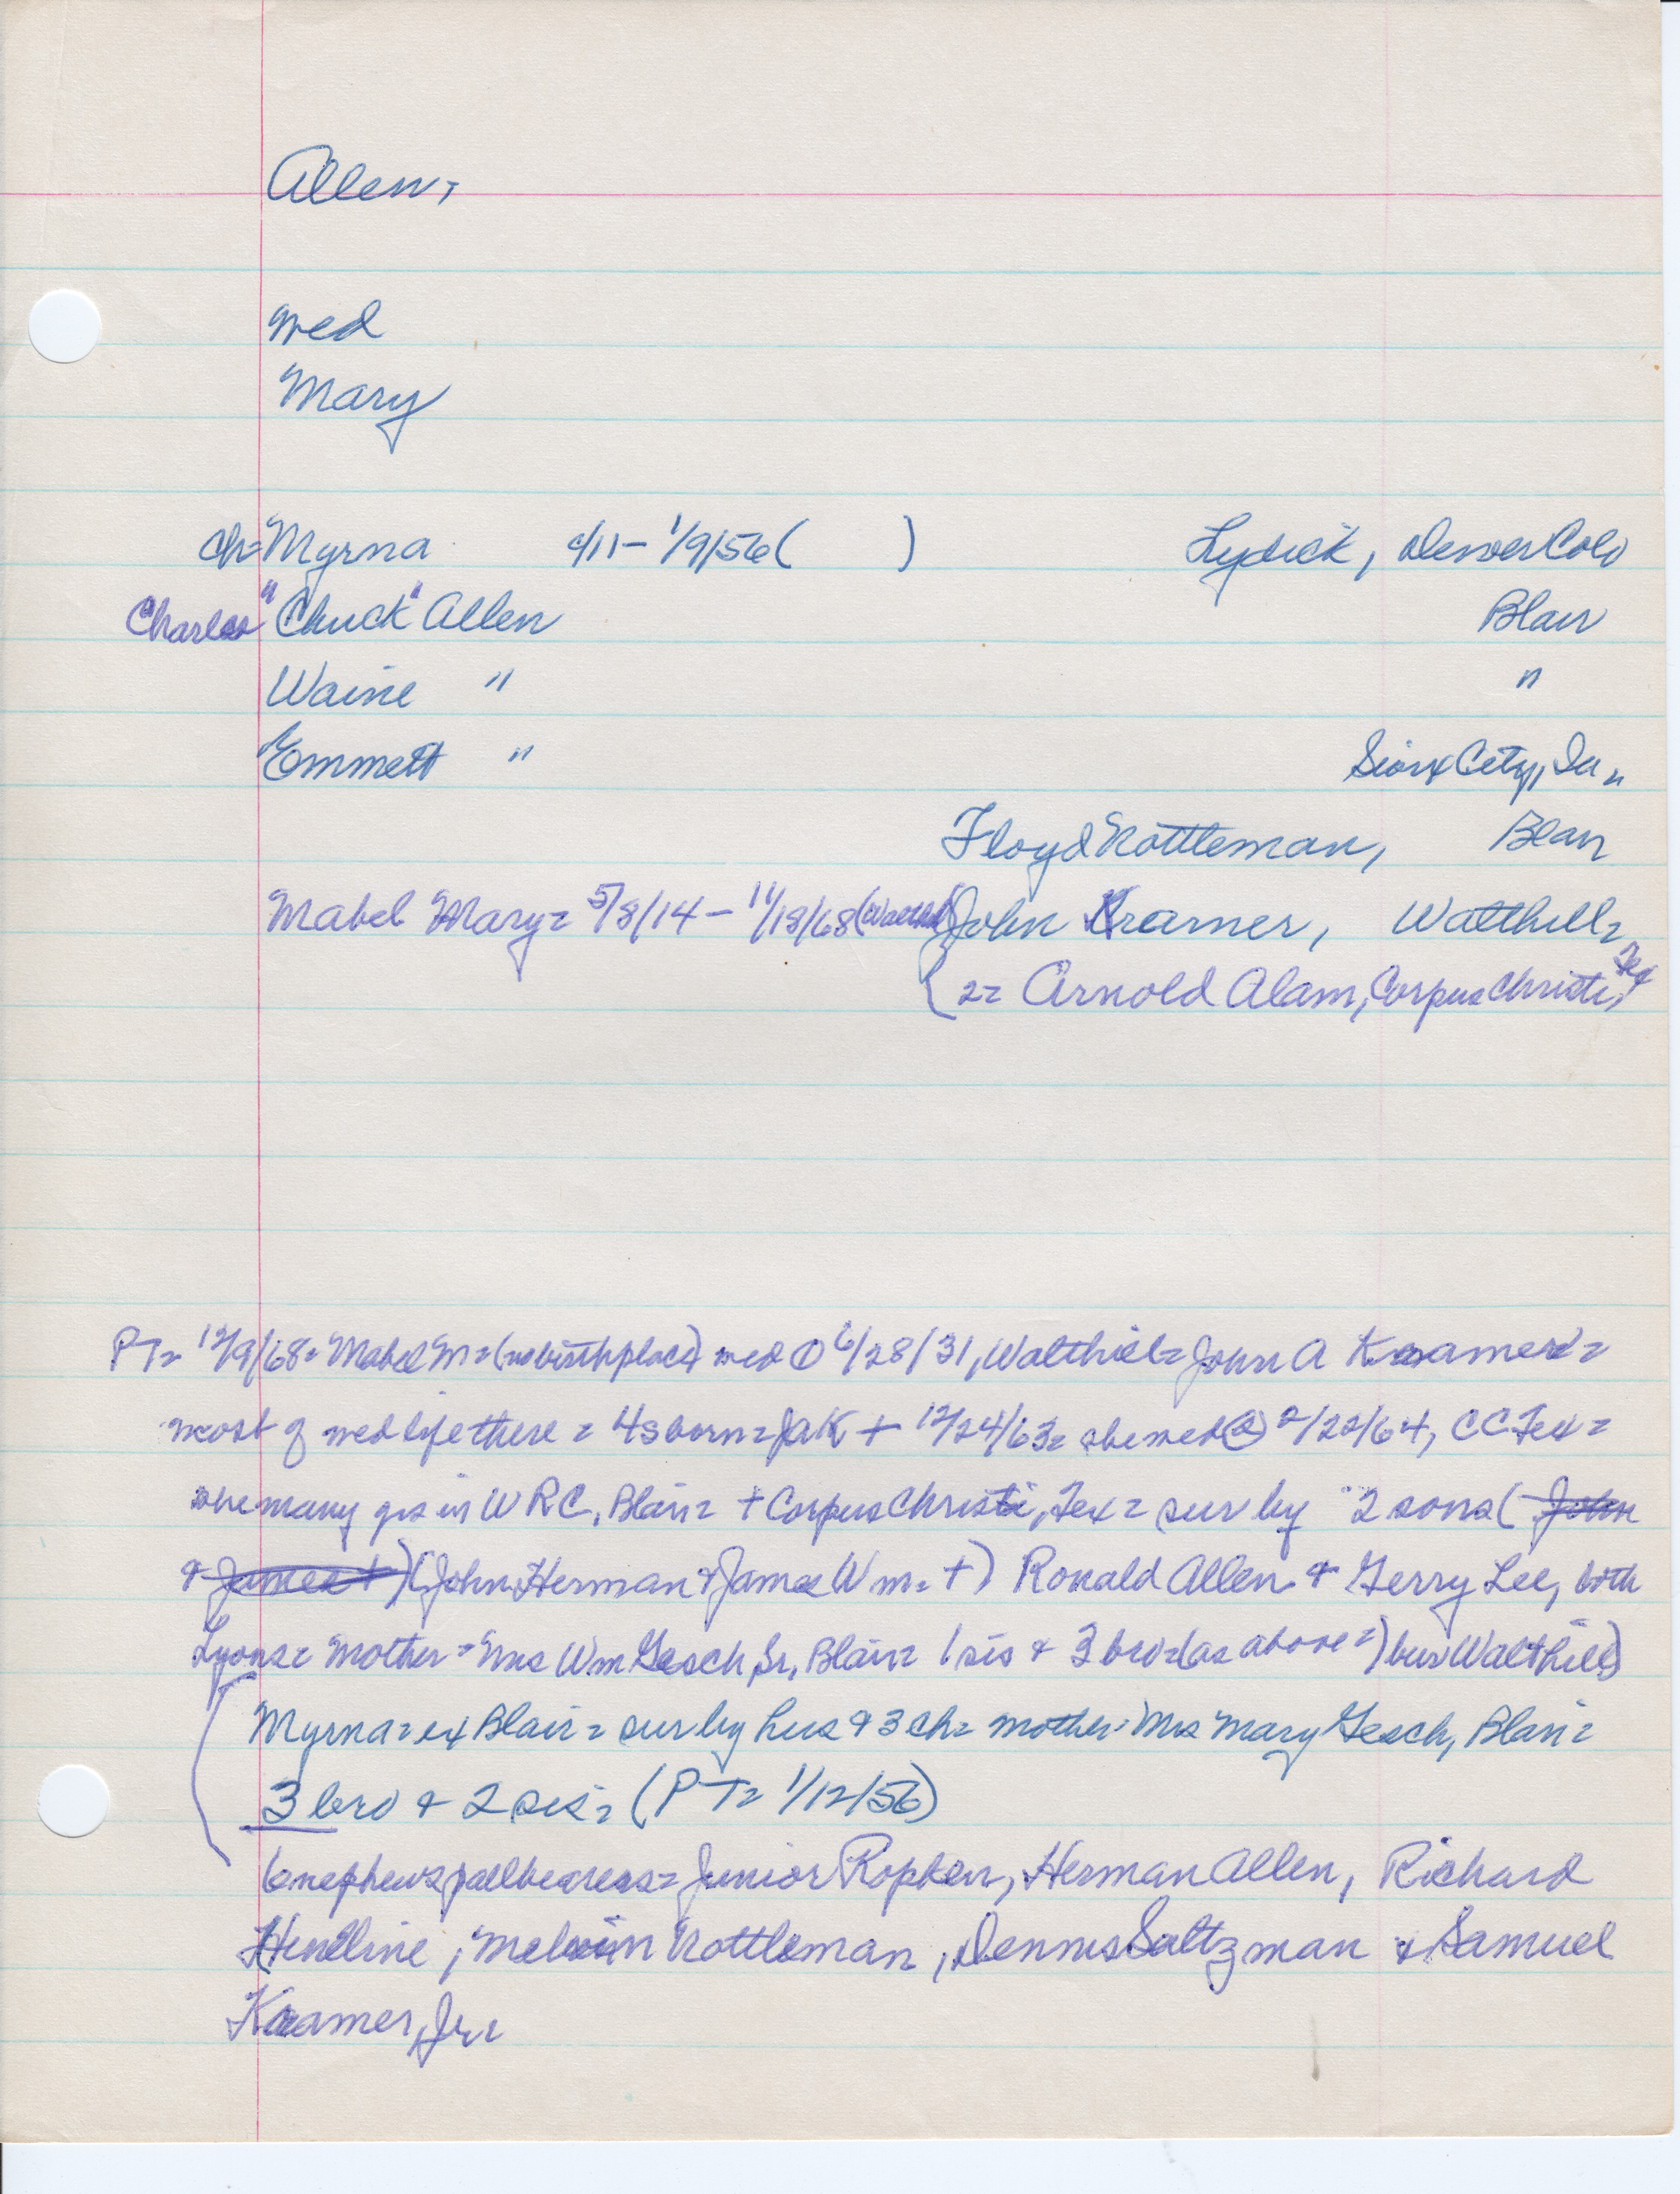 Allen,
med
Mary
ch= Myrna c/11 – 1/9/56 ( ) Lydick, Denver Colo
Charles "Chuck" Allen Blair
Waine " "
Emmett " Sioux City, Ia
Floyd Nottleman, Blair
Mabel Mary= 5/8/14 – 11/18/68 (Walthill) John Kramer, Walthill=
2= Arnold Alam, Corpus Christi, Tex
PT= 12/9/68= Mabel M= (no birthplace) med ① 6/28/31, Walthill= John A Kramer=
most of med life there = 4s born= JAK + 12/24/63= she med ② 2/22/64, CC Tex=
she many yrs in WRC, Blair= + Corpus Christi, Tex= sur by 2 sons ( John
& James + ) (John Herman & James Wm= +) Ronald Allen & Gerry Lee, both
Lyons= Mother= Mrs Wm Gesch, Sr, Blair= 1 sis & 3 bro= (as above=) bur Walthill)
Myrna= ex Blair= sur by hus & 3 ch= mother= Mrs Mary Gesch, Blair=
3 bro & 2 sis= (PT= 1/12/56)
6 nephews pallbearers= Junior Ropken, Herman Allen, Richard
Hineline, Melvin Nottleman, Dennis Saltzman & Samuel
Kramer, Jr=